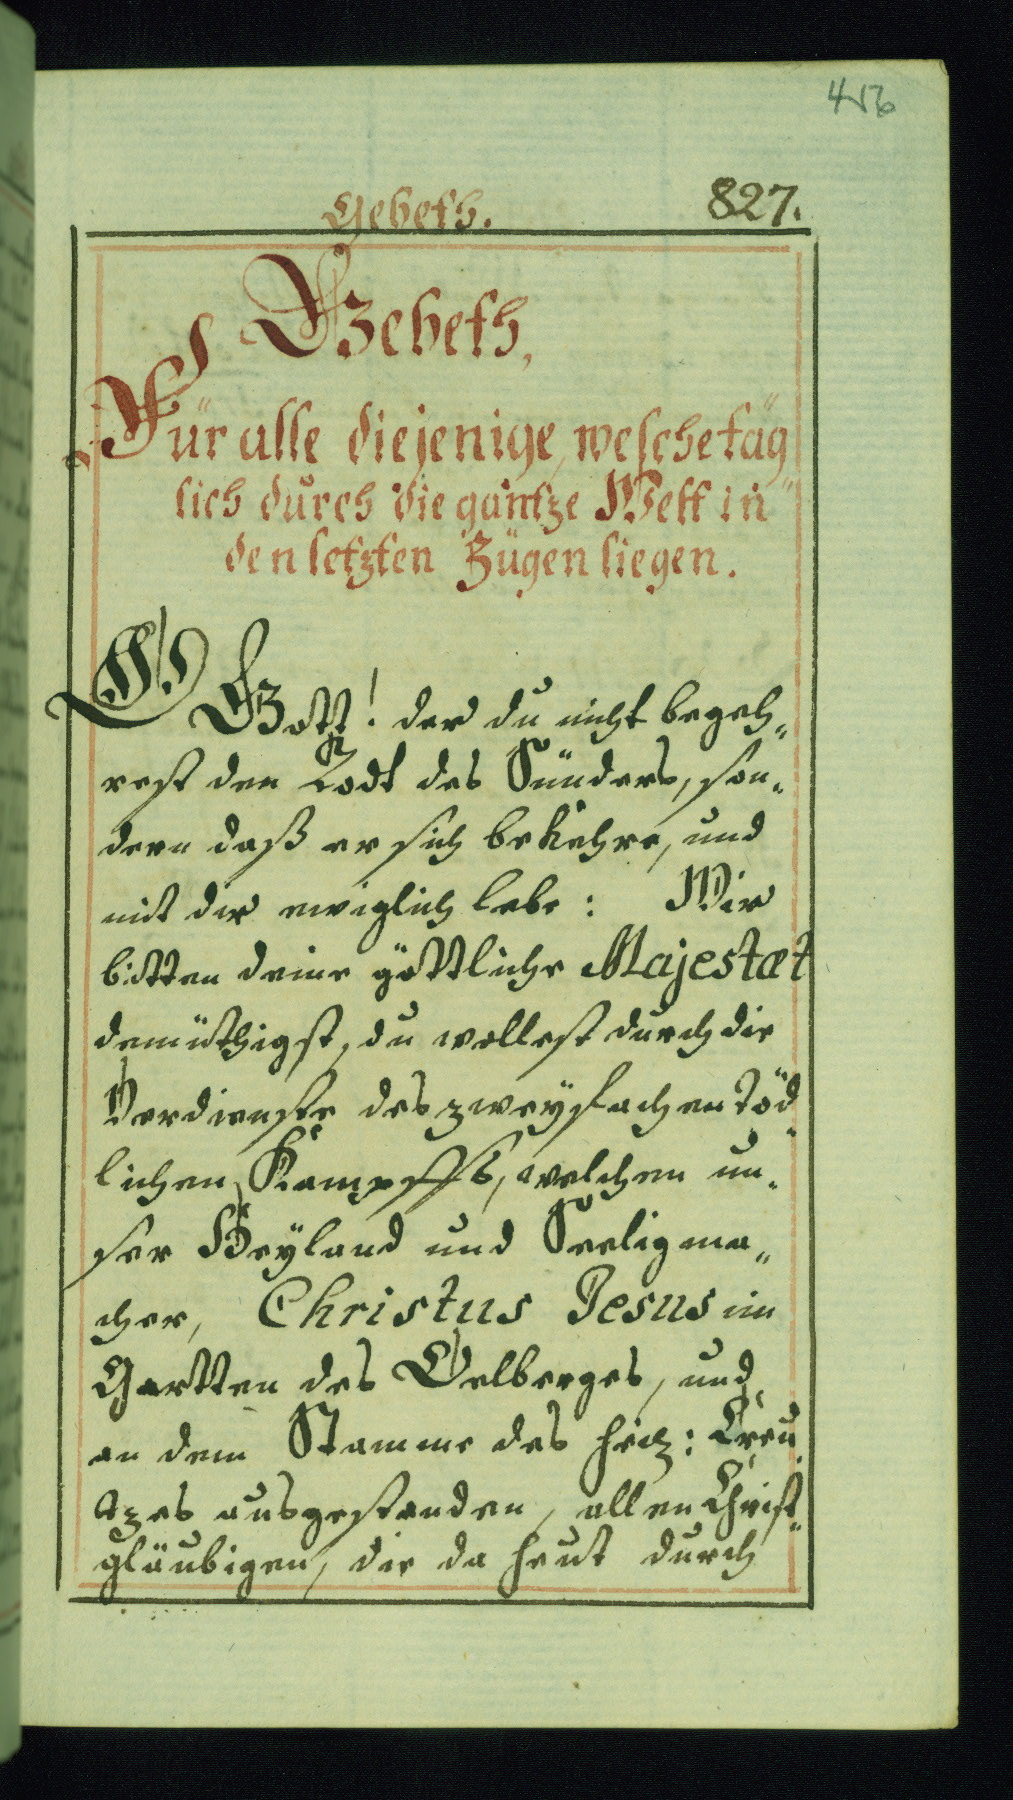 456
Gebeth. 827.
Gebeth,
Für alle diejenige, welche täg„
lich durch die gantze Welt in
den letzten Zügen liegen.
O Gott! der du nicht begeh„
rest den Todt des Sünders, son„
dern daß er sich bekehre, und
mit dir ewiglich lebe: Wir
bitten deine göttliche Majestæt
demüthigst, du wollest durch die
Verdienste des zweyfachen töd„
lichen Kampffs, welchen un„
ser Heyland und Seeligma„
cher, Christus Jesus im
Gartten des Oelberges, und
an dem Stamme des heil: Creu„
tzes ausgestanden, allen Christ„
gläubigen, die da heut durch